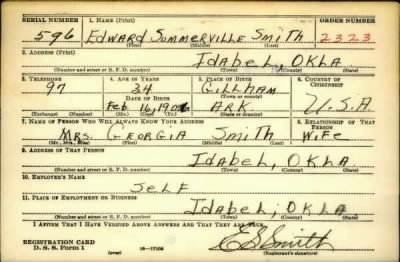 SERIAL NUMBER 1. NAME (Print) ORDER NUMBER
596 EDWARD SOMMERVILLE SMITH 2323
(First) (Middle) (Last)
2. ADDRESS (Print)
IDABEL, OKLA.
(Number and street or R. F. D. number) (Town) (County) (State)
3. TELEPHONE 4. AGE IN YEARS 5. PLACE OF BIRTH 6. COUNTRY OF CITIZENSHIP
97 34 GILLHAM
DATE OF BIRTH (Town or county)
Feb 16, 1906 ARK. U.S.A
(Exchange) (Number) (Mo.) (Day) (Yr.) (State or country)
7. NAME OF PERSON WHO WILL ALWAYS KNOW YOUR ADDRESS 8. RELATIONSHIP OF THAT PERSON
MRS. GEORGIA SMITH WIFE
(Mr., Mrs., Miss) (First) (Middle) (Last)
9. ADDRESS OF THAT PERSON
IDABEL, OKLA.
(Number and street or R. F. D. number) (Town) (County) (State)
10. EMPLOYER'S NAME
SELF
11. PLACE OF EMPLOYMENT OR BUSINESS
IDABEL, OKLA.
(Number and street or R. F. D. number) (Town) (County) (State)
I AFFIRM THAT I HAVE VERIFIED ABOVE ANSWERS AND THAT THEY ARE TRUE.
REGISTRATION CARD
D. S. S. Form 1 (over) E S Smith
(Registrant's signature)